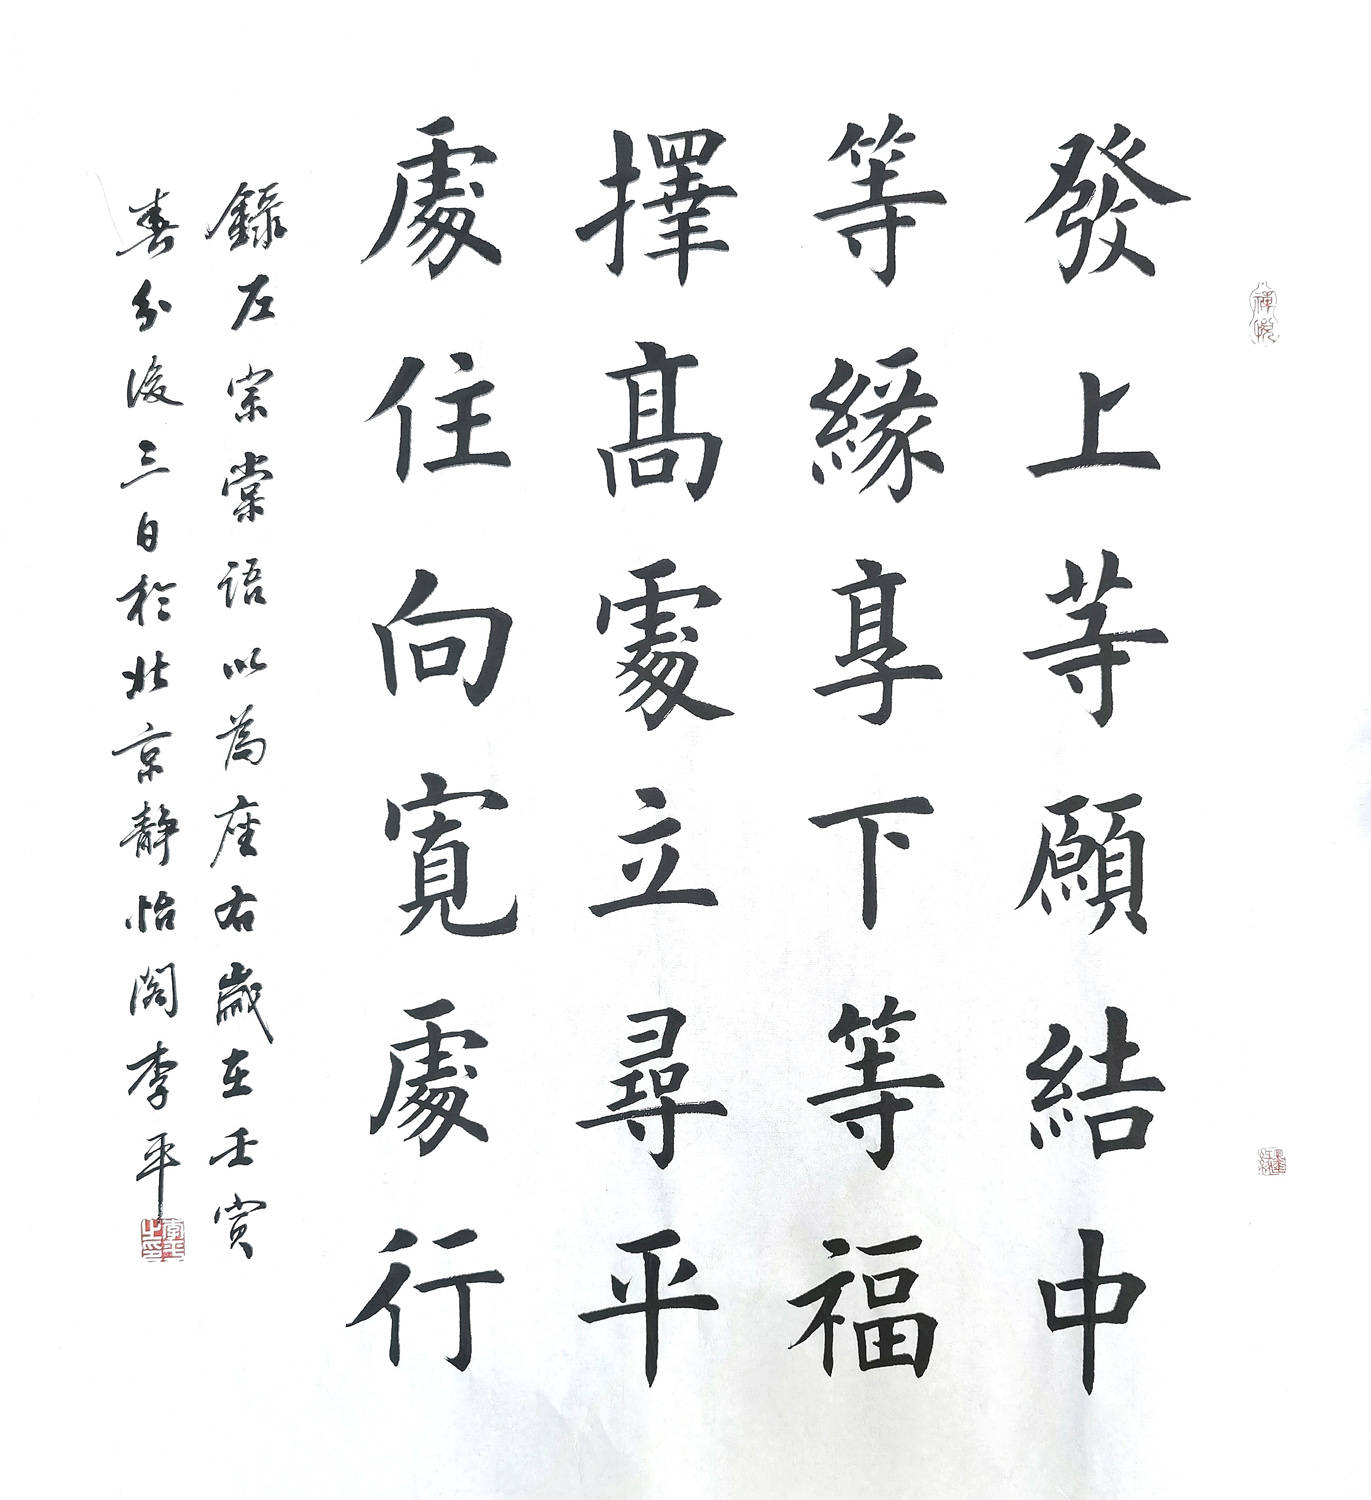 發上等願結中
等緣享下等福
擇高處立尋平
處住向寬處行
錄左宗棠語以為座右歲在壬寅
春分後三日於北京靜怡閣李平